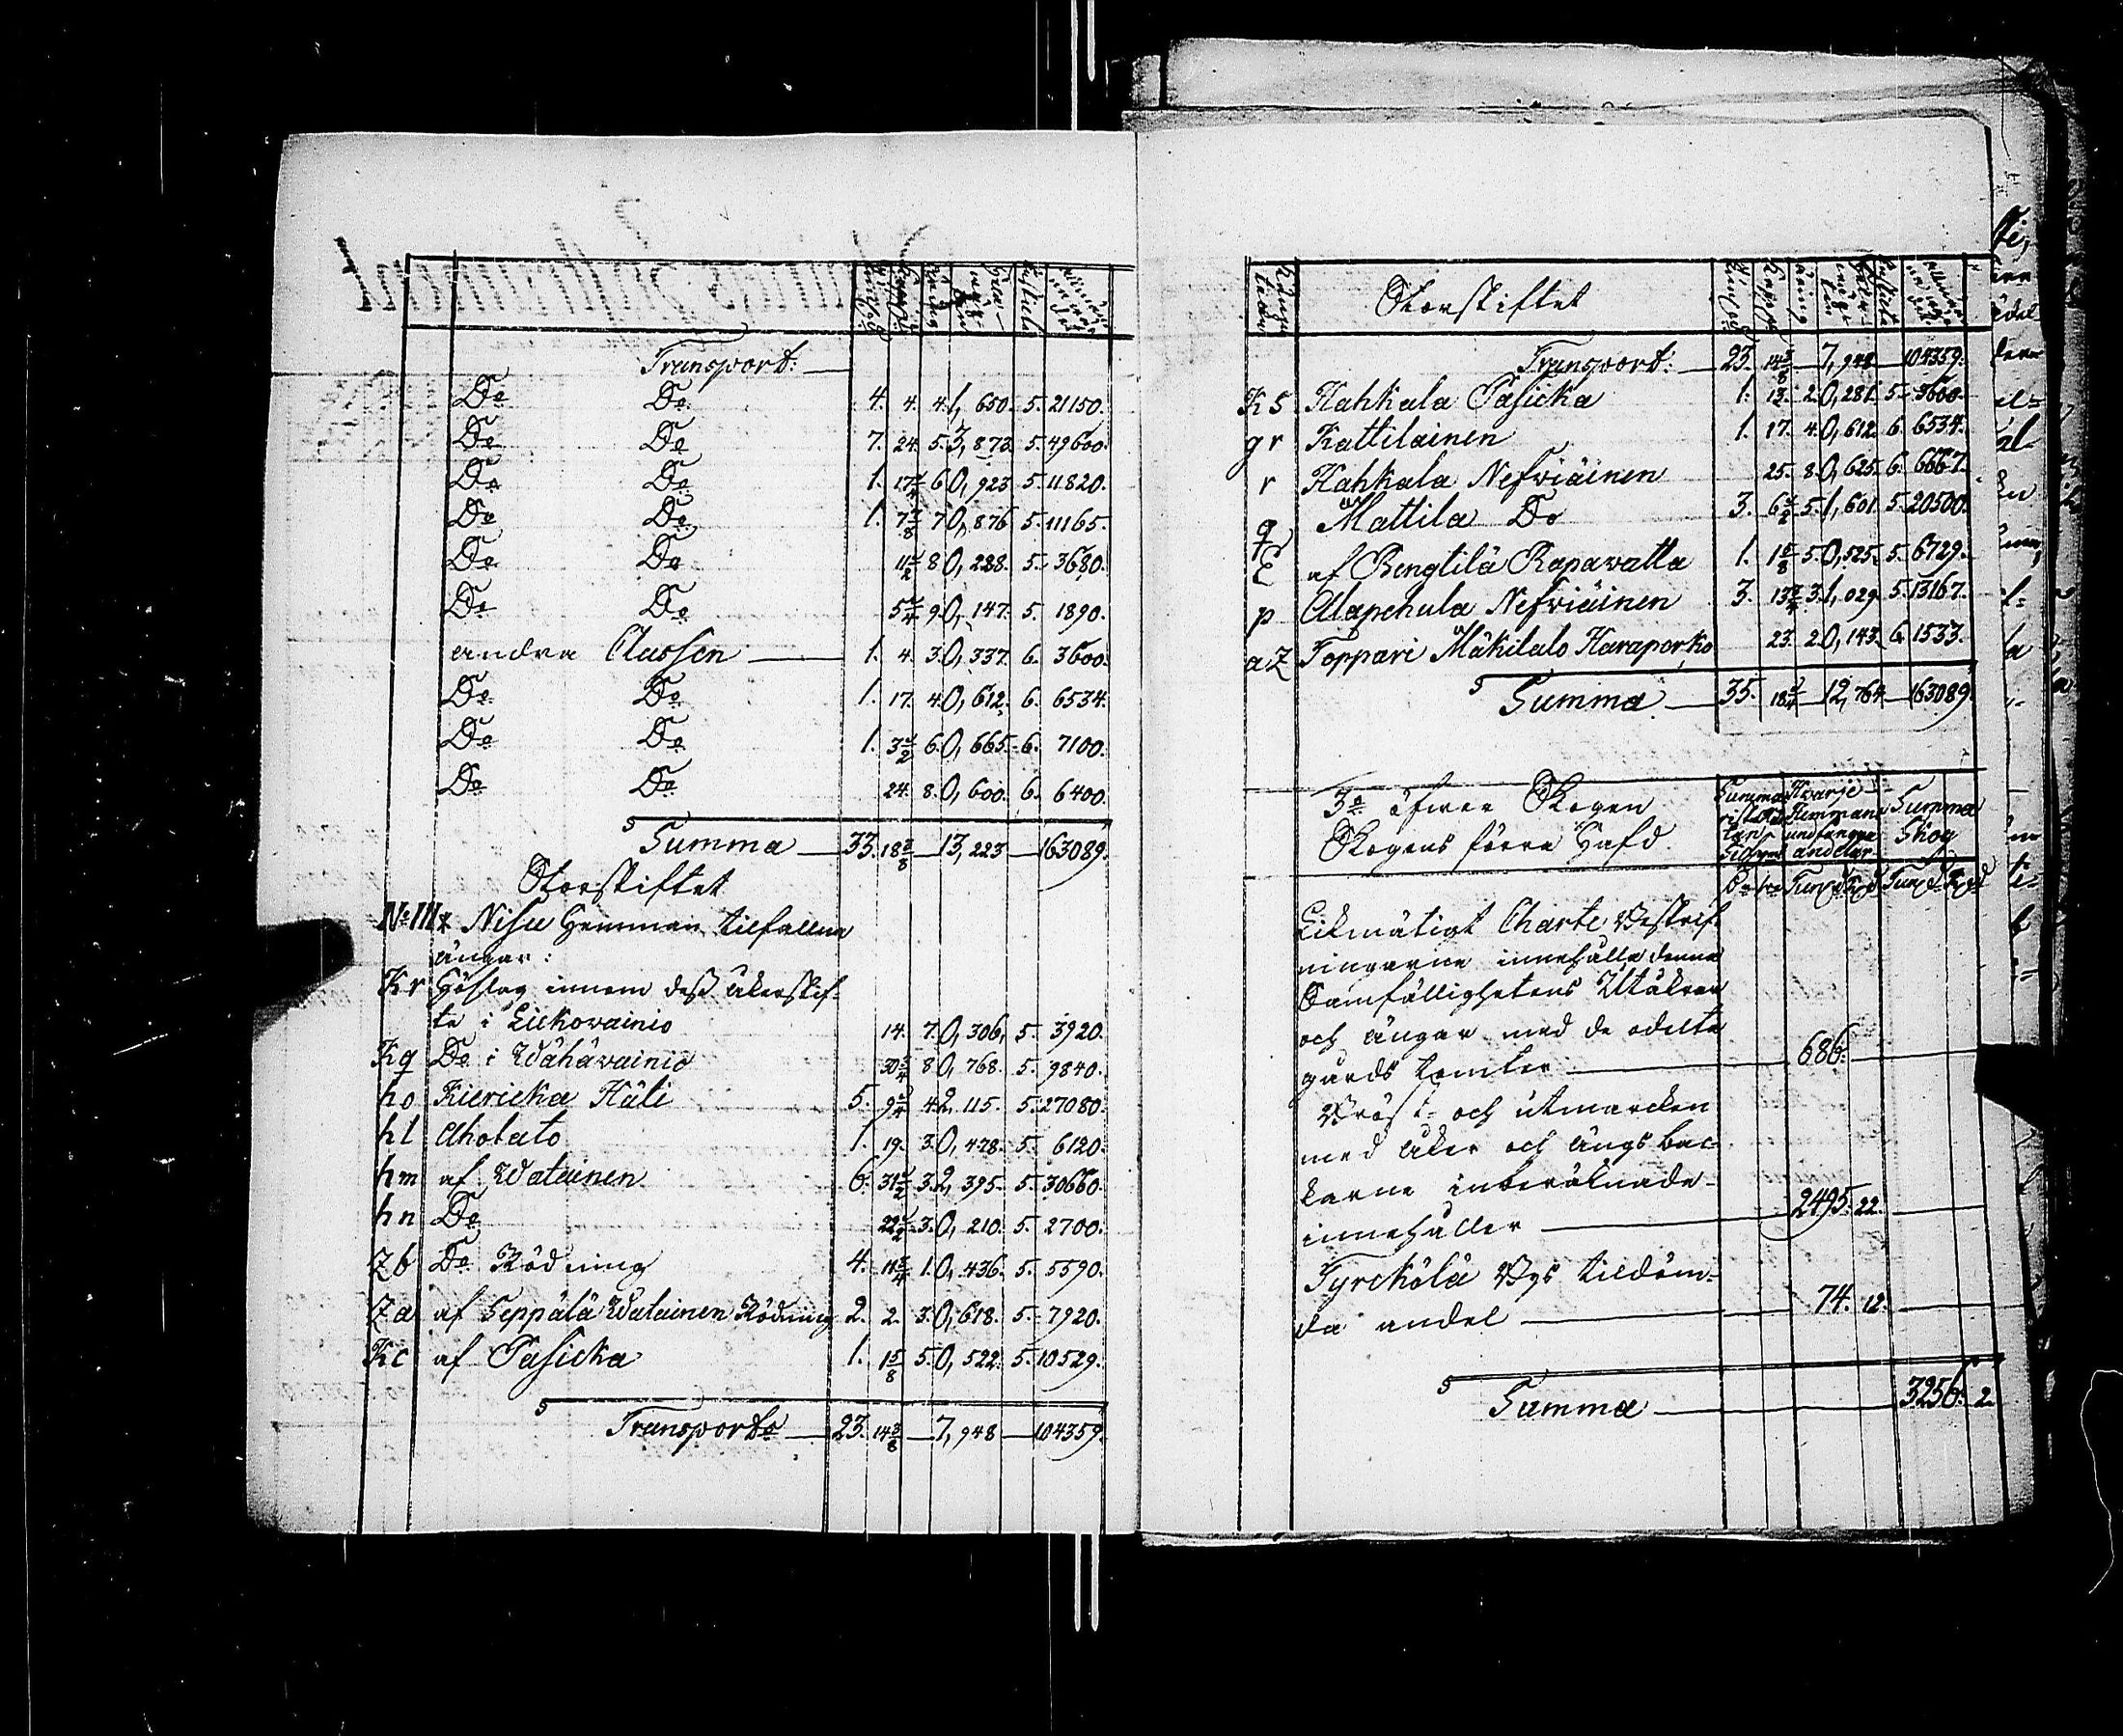 Transport:
Do Do 4. 4. 4. 1, 650. 5. 21150.
Do Do 7. 24. 5. 3, 873. 5. 49600.
Do Do 1. 17 1/4 6 0, 923 5. 11820.
Do Do 1. 7 7/8 7 0, 876 5. 11165.
Do Do 11 1/2 8 0, 288. 5. 3680.
Do Do 5 1/4 9 0, 147. 5. 1890.
andra Classen 1. 4. 3. 0, 337. 6. 3600.
Do Do 1. 17. 4. 0, 612. 6. 6534.
Do Do 1. 3 1/2 6. 0, 665. 6. 7100.
Do Do 24. 8. 0, 600. 6. 6400.
Summa 33. 18 3/8 13, 223 163089.
Storskiftet
No III Nisu Hemman tilfallne
ängar:
Kr Höslag innom dess åkerskif-
te i Lickovainio 14. 7. 0, 306, 5. 3920.
Kq Do i Wähävainio 30 3/4 8 0, 768. 5. 9840.
ho Kiericka Käli 5. 9 3/4 4 2, 115. 5. 27080.
hl Aholato 1. 19. 3. 0, 478. 5. 6120.
hm af Watainen 6. 31 1/2 3. 2, 395. 5. 30660.
hn Do 22 1/2 3. 0, 210. 5. 2700.
Zb Do Rödning 4. 11 3/4 1. 0, 436. 5. 5590.
Za af Seppälä Watainen Rödning 2. 2. 3. 0, 618. 5. 7920.
Kc af Pasicka 1. 1 5/8 5. 0, 522. 5. 10529.
Transporto 23. 14 3/8 7, 948 104359.
Storskiftet
Transport: 23. 14 3/8 7, 948 104359.
Ks Hahkala Pasicka 1. 13 1/2 2. 0, 281. 5. 3600
gr Kattilainen 1. 17. 4. 0, 612. 6. 6534.
r Hahkala Nefwiäinen 25. 8. 0, 625. 6. 6667.
q Mattila Do 3. 6 1/2 5. 1, 601. 5. 20500.
E af Bengtilä Rapavatta 1. 1 5/8 5. 0, 525. 5. 6729.
p Alapehula Nefwiäinen 3. 13 3/4 3. 1, 029. 5. 13167.
aZ Toppari Mäkilato Haraporko 23. 2. 0, 143. 6. 1533.
Summa 35. 18 1/4 12, 764 163089.
3o öfwer Skogen
Skogens förra Häfd.
Summa
Hvarje
Hemmans
undfangna
andelar
Summa
Skog
Likmätigt Charte Beskrif-
ningarne innehålla denne
Samfällighetens Utåkrar
och ängar med de odelta
gårds tomter 686.
Bröst- och utmarcken
med åker och ängs bac-
karne inberäknade
innehåller 2495. 22.
Tyrckölä Bys tildöm-
da andel 74. 12.
Summa 3256. 2.